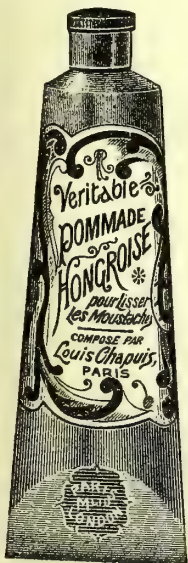 Veritable
POMMADE
HONGROISE
pour lisser
les Moustaches
COMPOSÉ PAR
Louis Chapuis,
PARIS
LONDON